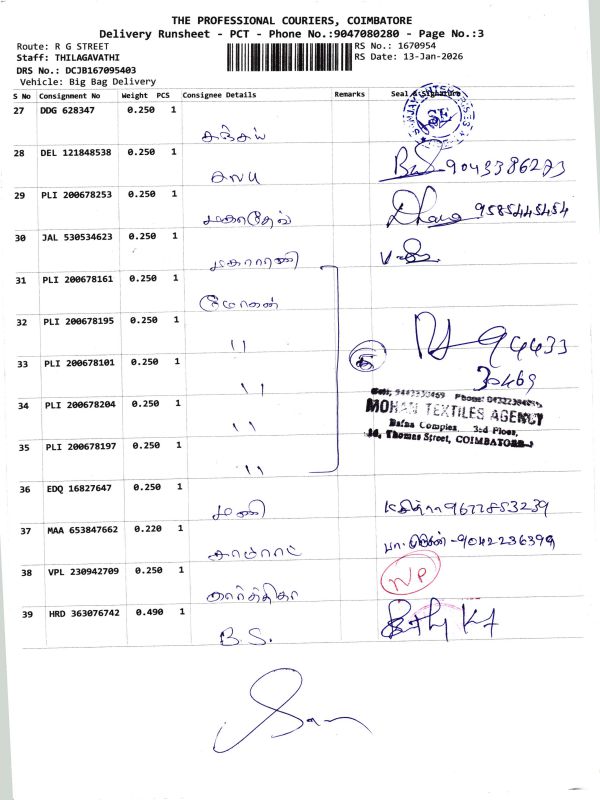 THE PROFESSIONAL COURIERS, COIMBATORE
Delivery Runsheet - PCT - Phone No.:9047080280 - Page No.:3
Route: R G STREET
RS No.: 1670954
Staff: THILAGAVATHI
RS Date: 13-Jan-2026
DRS No.: DCJB167095403
Vehicle: Big Bag Delivery
S No Consignment No Weight PCS Consignee Details Remarks Seal & Signature
27 DDG 628347 0.250 1
சஞ்சய்
28 DEL 121848538 0.250 1
9043386273
29 PLI 200678253 0.250 1
மகாதேவ் 9585445454
30 JAL 530534623 0.250 1
மகாராணி
31 PLI 200678161 0.250 1
மோகன்
32 PLI 200678195 0.250 1
" 94433
33 PLI 200678101 0.250 1
30469
"
34 PLI 200678204 0.250 1
MOHAN TEXTILES AGENCY
" Bafna Complex, 3rd Floor,
Thomas Street, COIMBATORE-1
35 PLI 200678197 0.250 1
"
36 EDQ 16827647 0.250 1
மணி 9677853239
37 MAA 653847662 0.220 1
காமராட் 9042236399
38 VPL 230942709 0.250 1
கார்த்திகா NP
39 HRD 363076742 0.490 1
B.S.